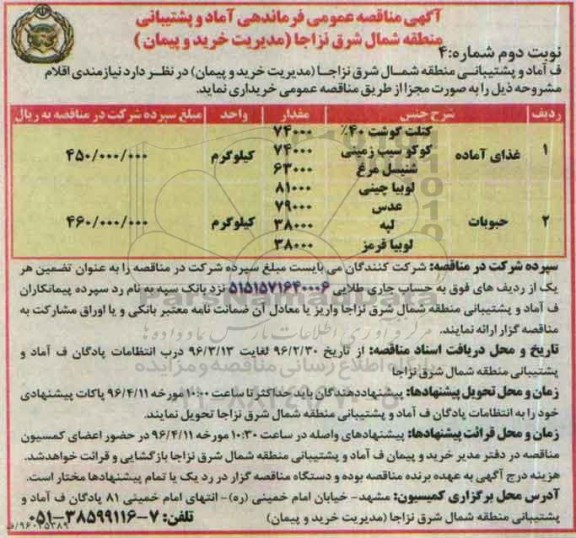 آگهی مناقصه عمومی فرماندهی آماد و پشتیبانی
منطقه شمال شرق نزاجا (مدیریت خرید و پیمان)
نوبت دوم شماره: ۴
ف آماد و پشتیبانی منطقه شمال شرق نزاجا (مدیریت خرید و پیمان) در نظر دارد نیازمندی اقلام
مشروحه ذیل را به صورت مجزا از طریق مناقصه عمومی خریداری نماید.
ردیف شرح جنس مقدار واحد مبلغ سپرده شرکت در مناقصه به ریال
۱ غذای آماده کیلوگرم ۴۵۰/۰۰۰/۰۰۰
کتلت گوشت ۴۰٪ ۷۴۰۰۰
کوکو سیب زمینی ۷۴۰۰۰
شنیسل مرغ ۶۳۰۰۰
۲ حبوبات کیلوگرم ۴۶۰/۰۰۰/۰۰۰
لوبیا چینی ۸۱۰۰۰
عدس ۷۹۰۰۰
لپه ۳۸۰۰۰
لوبیا قرمز ۳۸۰۰۰
سپرده شرکت در مناقصه: شرکت کنندگان می بایست مبلغ سپرده شرکت در مناقصه را به عنوان تضمین هر
یک از ردیف های فوق به حساب جاری طلایی ۵۱۵۱۵۷۱۶۴۰۰۰۶ نزد بانک سپه به نام رد سپرده پیمانکاران
ف آماد و پشتیبانی منطقه شمال شرق نزاجا واریز یا معادل آن ضمانت نامه معتبر بانکی و یا اوراق مشارکت به
مناقصه گزار ارائه نمایند.
تاریخ و محل دریافت اسناد مناقصه: از تاریخ ۹۶/۲/۳۰ لغایت ۹۶/۳/۱۳ درب انتظامات پادگان ف آماد و
پشتیبانی منطقه شمال شرق نزاجا
زمان و محل تحویل پیشنهادها: پیشنهاددهندگان باید حداکثر تا ساعت ۱۰:۰۰ مورخه ۹۶/۴/۱۱ پاکات پیشنهادی
خود را به انتظامات پادگان ف آماد و پشتیبانی منطقه شمال شرق نزاجا تحویل نمایند.
زمان و محل قرائت پیشنهادها: پیشنهادهای واصله در ساعت ۱۰:۳۰ مورخه ۹۶/۴/۱۱ در حضور اعضای کمسیون
مناقصه در دفتر مدیر خرید و پیمان ف آماد و پشتیبانی منطقه شمال شرق نزاجا بازگشایی و قرائت خواهدشد.
هزینه درج آگهی به عهده برنده مناقصه بوده و دستگاه مناقصه گزار در رد یک یا تمام پیشنهادها مختار است.
آدرس محل برگزاری کمیسیون: مشهد- خیابان امام خمینی (ره)- انتهای امام خمینی ۸۱ پادگان ف آماد و
پشتیبانی منطقه شمال شرق نزاجا (مدیریت خرید و پیمان) تلفن: ۷-۳۸۵۹۹۱۱۶-۰۵۱